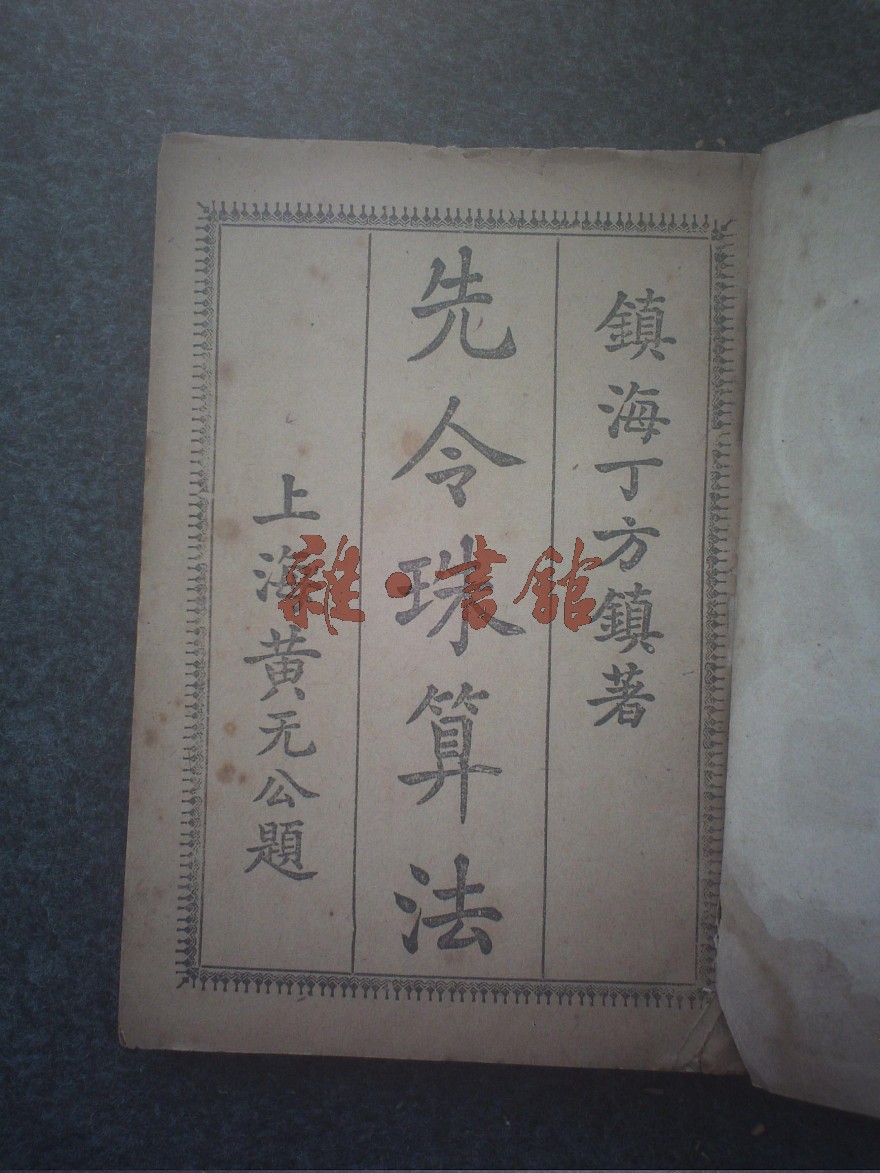 鎮海丁方鎮著
先令珠算法
上海黄无公題
雜·書館